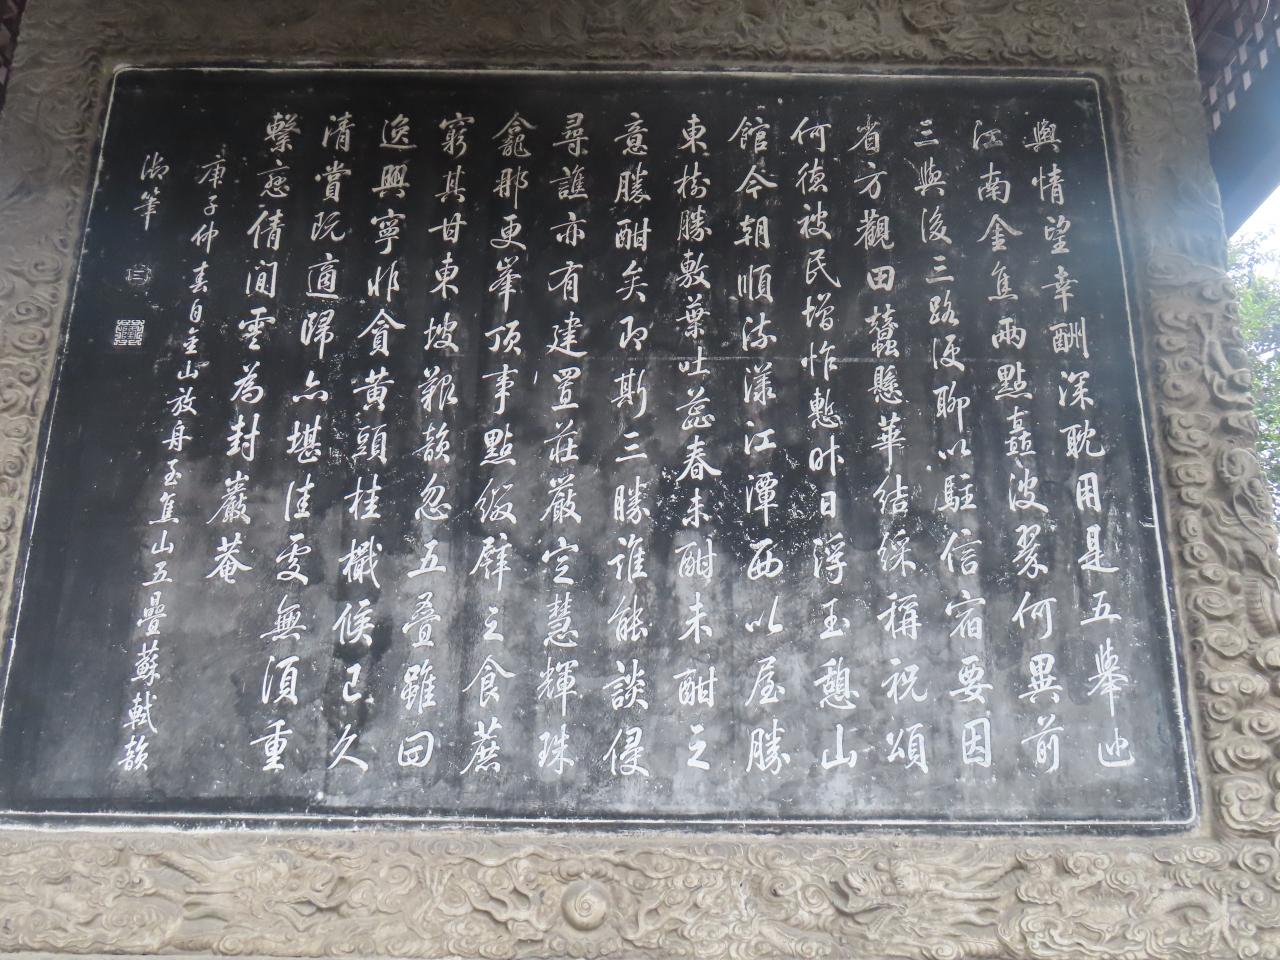 輿情望幸酬深耽用是五舉迆
江南金焦兩點矗波翠何異前
三與後三路便聊以駐信宿要因
省方觀田蠶懸華結綵稱祝頌
何德被民增怍慙昨日浮玉憩山
館今朝順流漾江潭西以屋勝
東樹勝敷葉吐蕊春未酣未酣之
意勝酣矣即斯三勝誰能談侵
尋譙亦有建置莊嚴定慧輝珠
龕那更峯頂事點綴辟之食蔗
窮其甘東坡艱韻忽五疊雖曰
逸興寧非貪黃頭桂檝候已久
清賞既適歸亦堪佳處無須重
繫戀倩間雲為封巖菴
庚子仲春自金山放舟至焦山五疊蘇軾韻
御筆